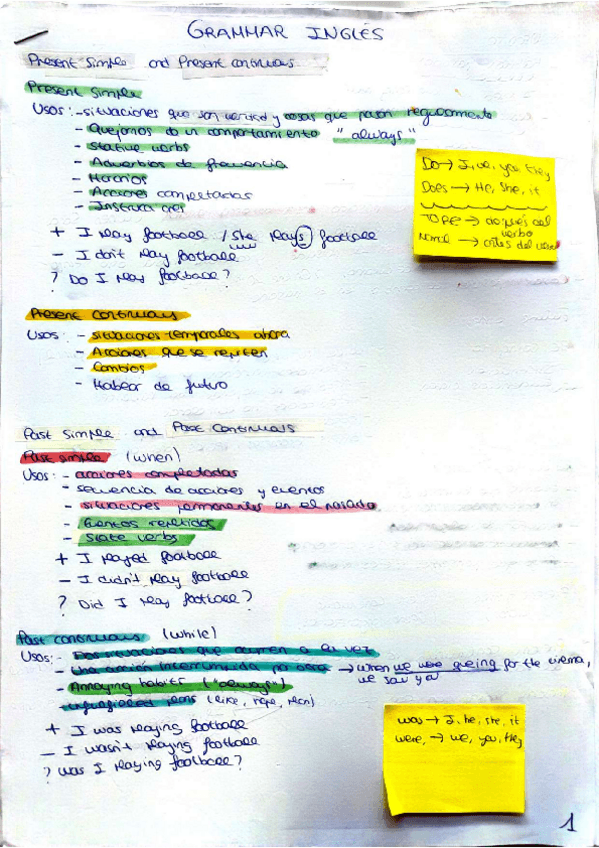 GRAMMAR INGLÉS
Present simple and Present continuous
Present simple
Usos: - situaciones que son verdad y cosas que pasan regularmente
- Quejarnos de un comportamiento "always"
- Stative verbs
- Adverbios de frecuencia
- Horarios
- Acciones completadas
- Instrucciones
+ I play football / She plays football
- I don't play football
? Do I play football?
Do → I, we, you, they
Does → He, she, it
TO BE → después del verbo
Normal → antes del verbo
Present continuous
Usos: - situaciones temporales ahora
- Acciones que se repiten
- Cambios
- Hablar de futuro
Past simple and Past continuous
Past simple (when)
Usos: - acciones completadas
- secuencia de acciones y eventos
- situaciones permanentes en el pasado
- Eventos repetidos
- State verbs
+ I played football
- I didn't play football
? Did I play football?
Past continuous (while)
Usos: - Dos situaciones que ocurren a la vez
- Una acción interrumpida por otra → when we were queing for the cinema,
we saw you
- Annoying habits ("always")
- unfulfilled plans (like, hope, plan)
+ I was playing football
- I wasn't playing football
? Was I playing football?
was → I, he, she, it
were, → we, you, they
1